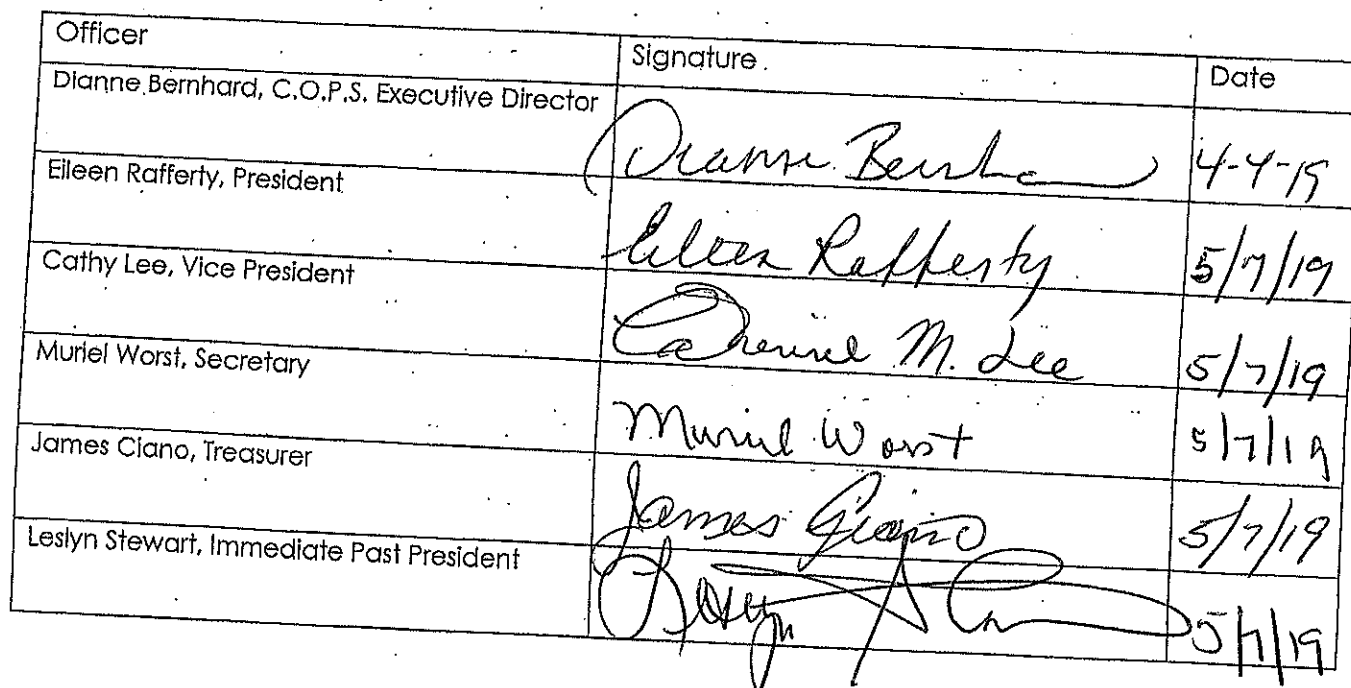 Officer Signature Date
Dianne Bernhard, C.O.P.S. Executive Director Dianne 4-4-19
Eileen Rafferty, President Eileen Rafferty 5/7/19
Cathy Lee, Vice President Catherine M. Lee 5/7/19
Muriel Worst, Secretary Muriel Worst 5/7/19
James Ciano, Treasurer James Ciano 5/7/19
Leslyn Stewart, Immediate Past President 5/7/19